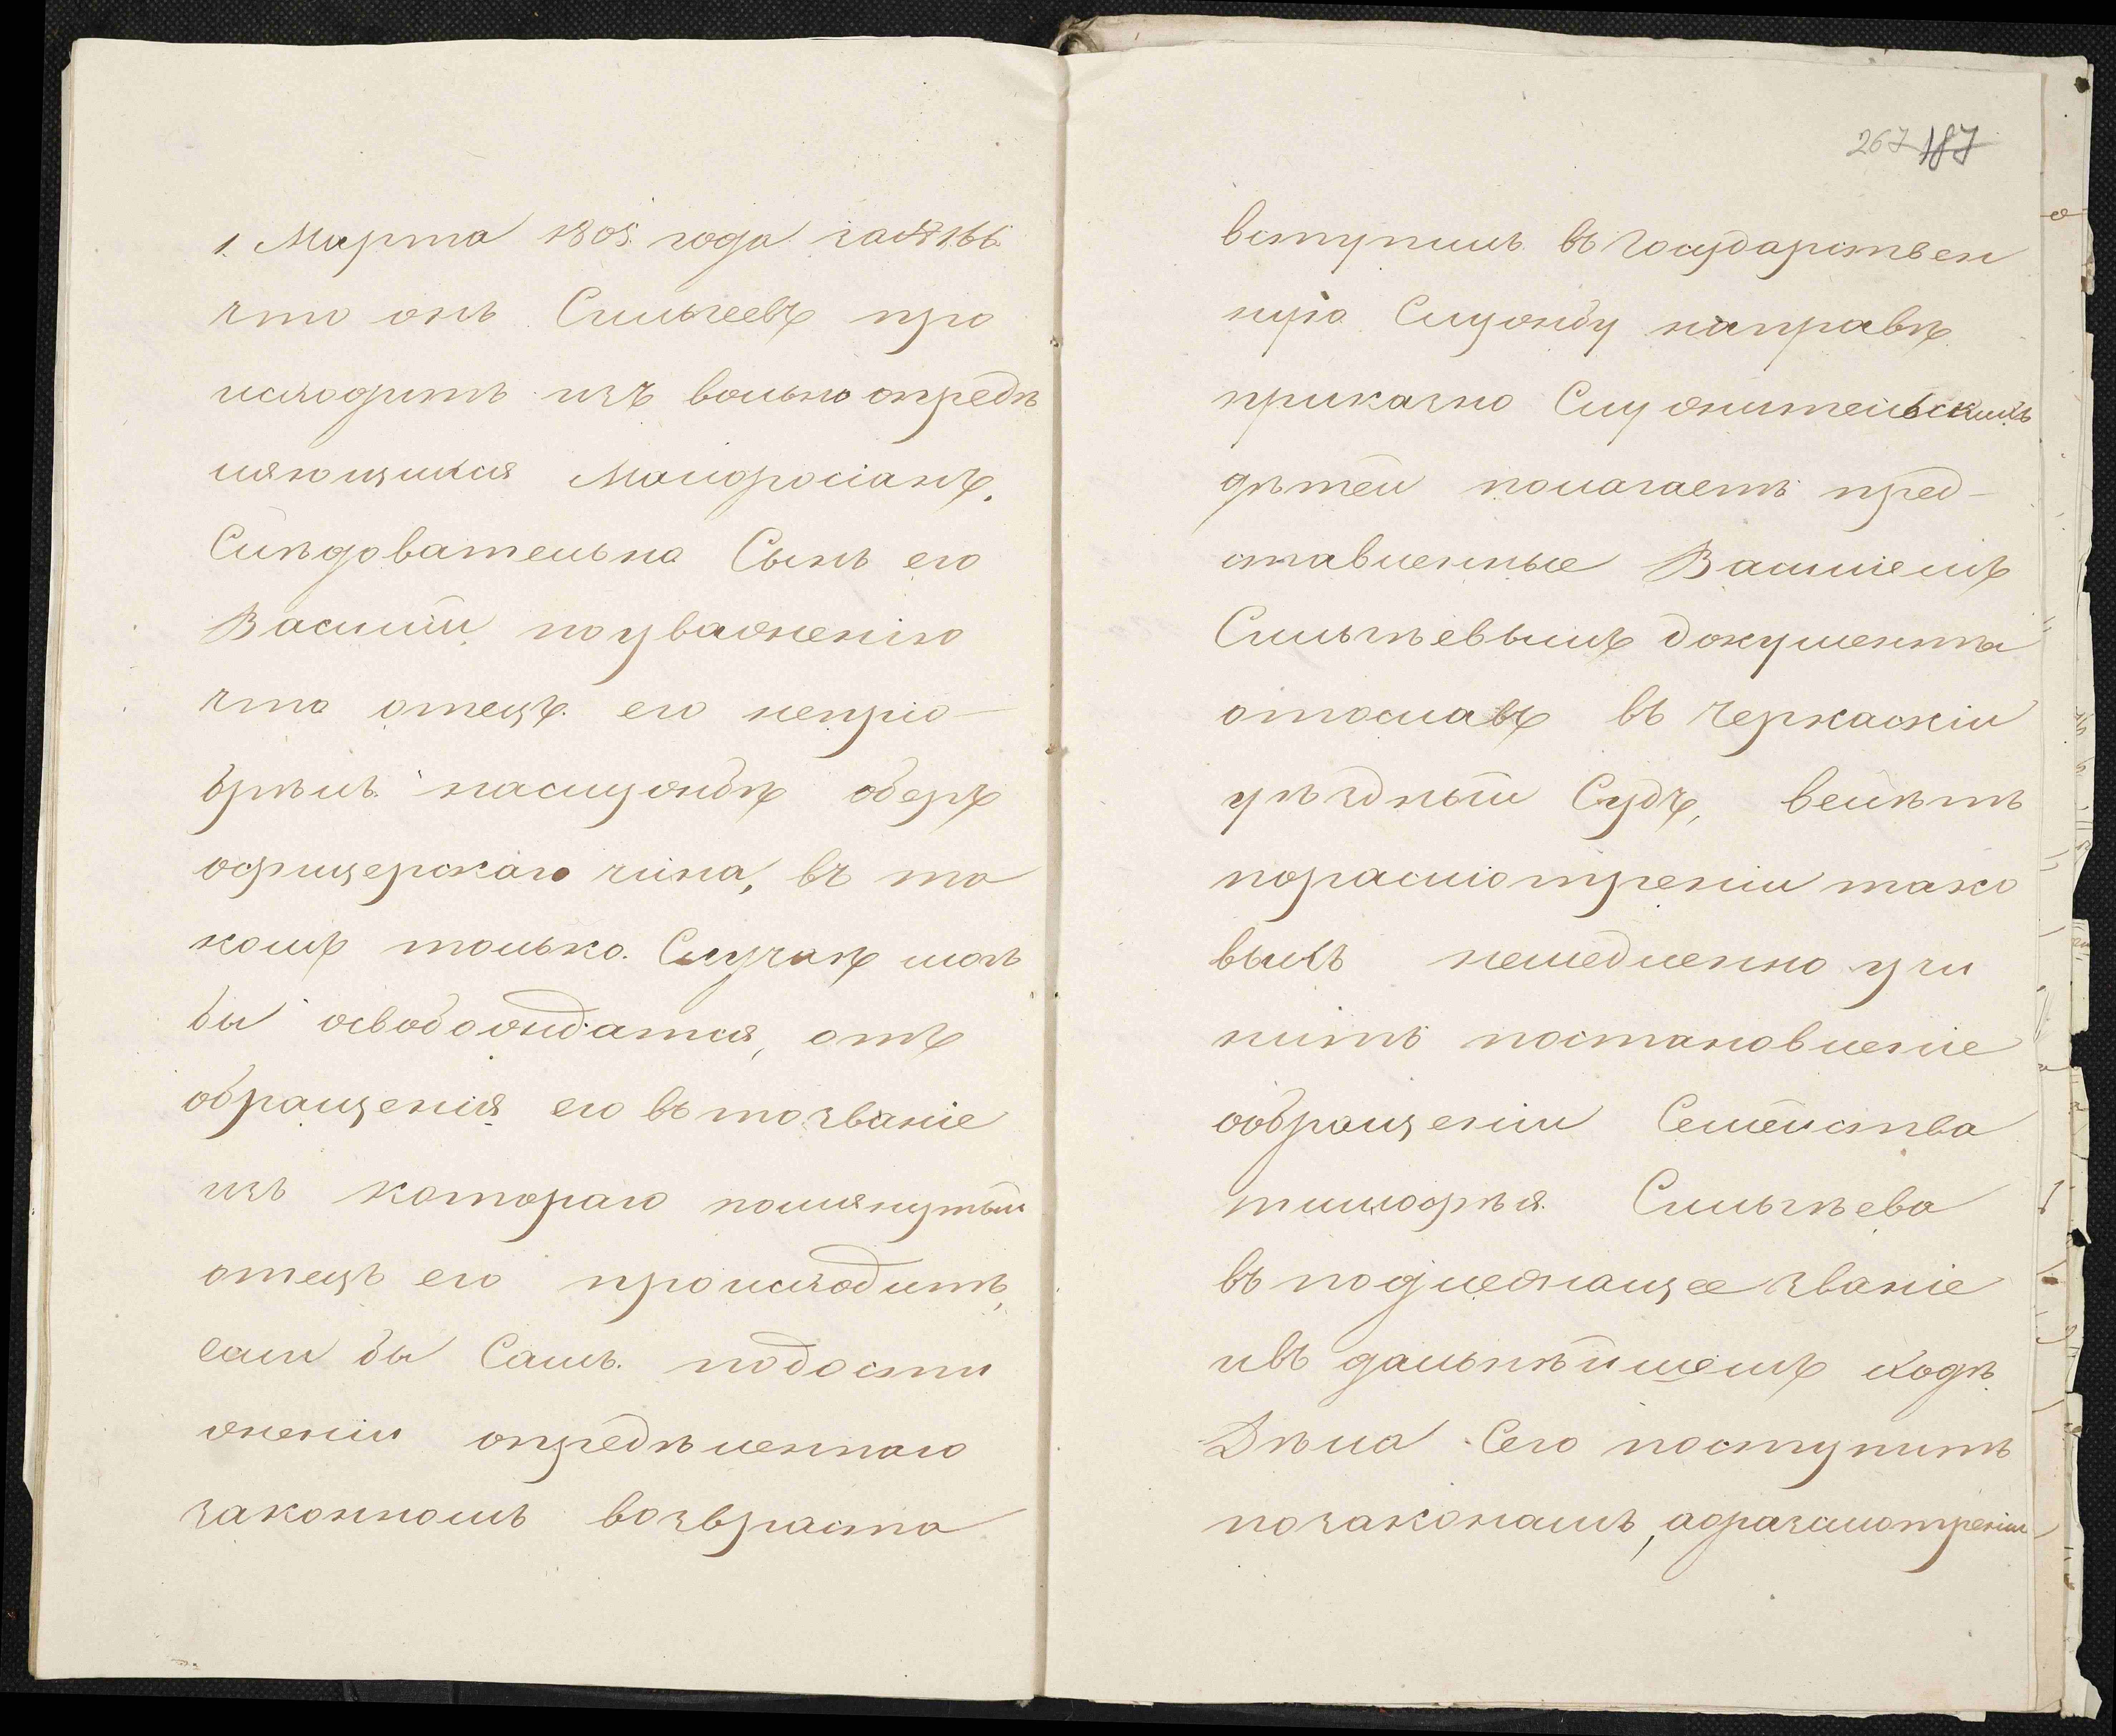 1. Марта 1805. года за № 166.
что онъ Сильчеевъ про
исходитъ изъ вольно опредѣ
ляющихся Малоросіанъ.
Слѣдовательно Сынъ его
Василій поуваженію
что отецъ его непріо-
брѣлъ наслужбѣ оберъ
офицерскаго чина, въ та
комъ только Случаѣ могъ
бы освобождатся, отъ
обращенія его въ то званіе
изъ котораго помянутый
отецъ его происходитъ,
если бы Самъ подости
женіи опредѣленнаго
закономъ возвраста
267 187
вступилъ въ Государствен
ную Службу направѣ
приказно Служительскихъ
дѣтей полагаетъ пред-
ставленные Василіемъ
Сильчѣевымъ документы
отославъ въ Черкаскій
уѣздный Судъ, велѣть
поразсмотреніи тако
выхъ немедленно учи
нить постановленіе
ообращеніи Семейства
тимофѣя Сильчѣева
въ подлежащее званіе
ивъ дальнѣйшемъ ходѣ
Дѣла Сего поступить
позаконамъ, аоразсмотреніи